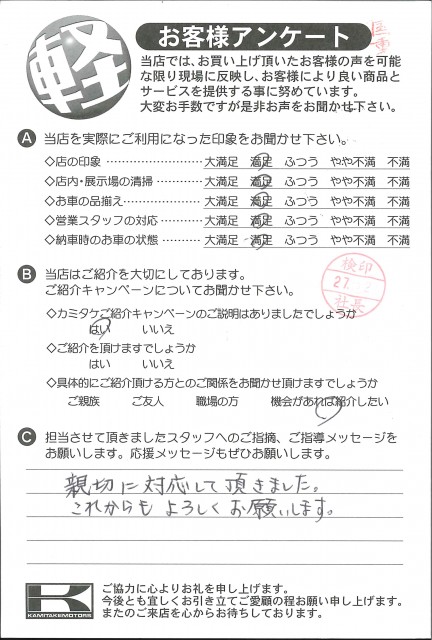 軽
お客様アンケート
当店では、お買い上げ頂いたお客様の声を可能
な限り現場に反映し、お客様により良い商品と
サービスを提供する事に努めています。
大変お手数ですが是非お声をお聞かせ下さい。
A 当店を実際にご利用になった印象をお聞かせ下さい。
◇店の印象 …………………… 大満足 満足 ふつう やや不満 不満
◇店内・展示場の清掃………… 大満足 満足 ふつう やや不満 不満
◇お車の品揃え………………… 大満足 満足 ふつう やや不満 不満
◇営業スタッフの対応………… 大満足 満足 ふつう やや不満 不満
◇納車時のお車の状態………… 大満足 満足 ふつう やや不満 不満
B 当店はご紹介を大切にしております。
ご紹介キャンペーンについてお聞かせ下さい。
検印
27
社長
◇カミタケご紹介キャンペーンのご説明はありましたでしょうか
はい いいえ
◇ご紹介を頂けますでしょうか
はい いいえ
◇具体的にご紹介頂ける方とのご関係をお聞かせ頂けますでしょうか
ご親族 ご友人 職場の方 機会があれば紹介したい
C 担当させて頂きましたスタッフへのご指摘、ご指導メッセージを
お願いします。応援メッセージもぜひお願いします。
親切に対応して頂きました。
これからもよろしくお願いします。
K
KAMITAKEMOTORS
ご協力に心よりお礼を申し上げます。
今後とも宜しくお引き立てご愛顧の程お願い申し上げます。
またのご来店を心からお待ちしております。